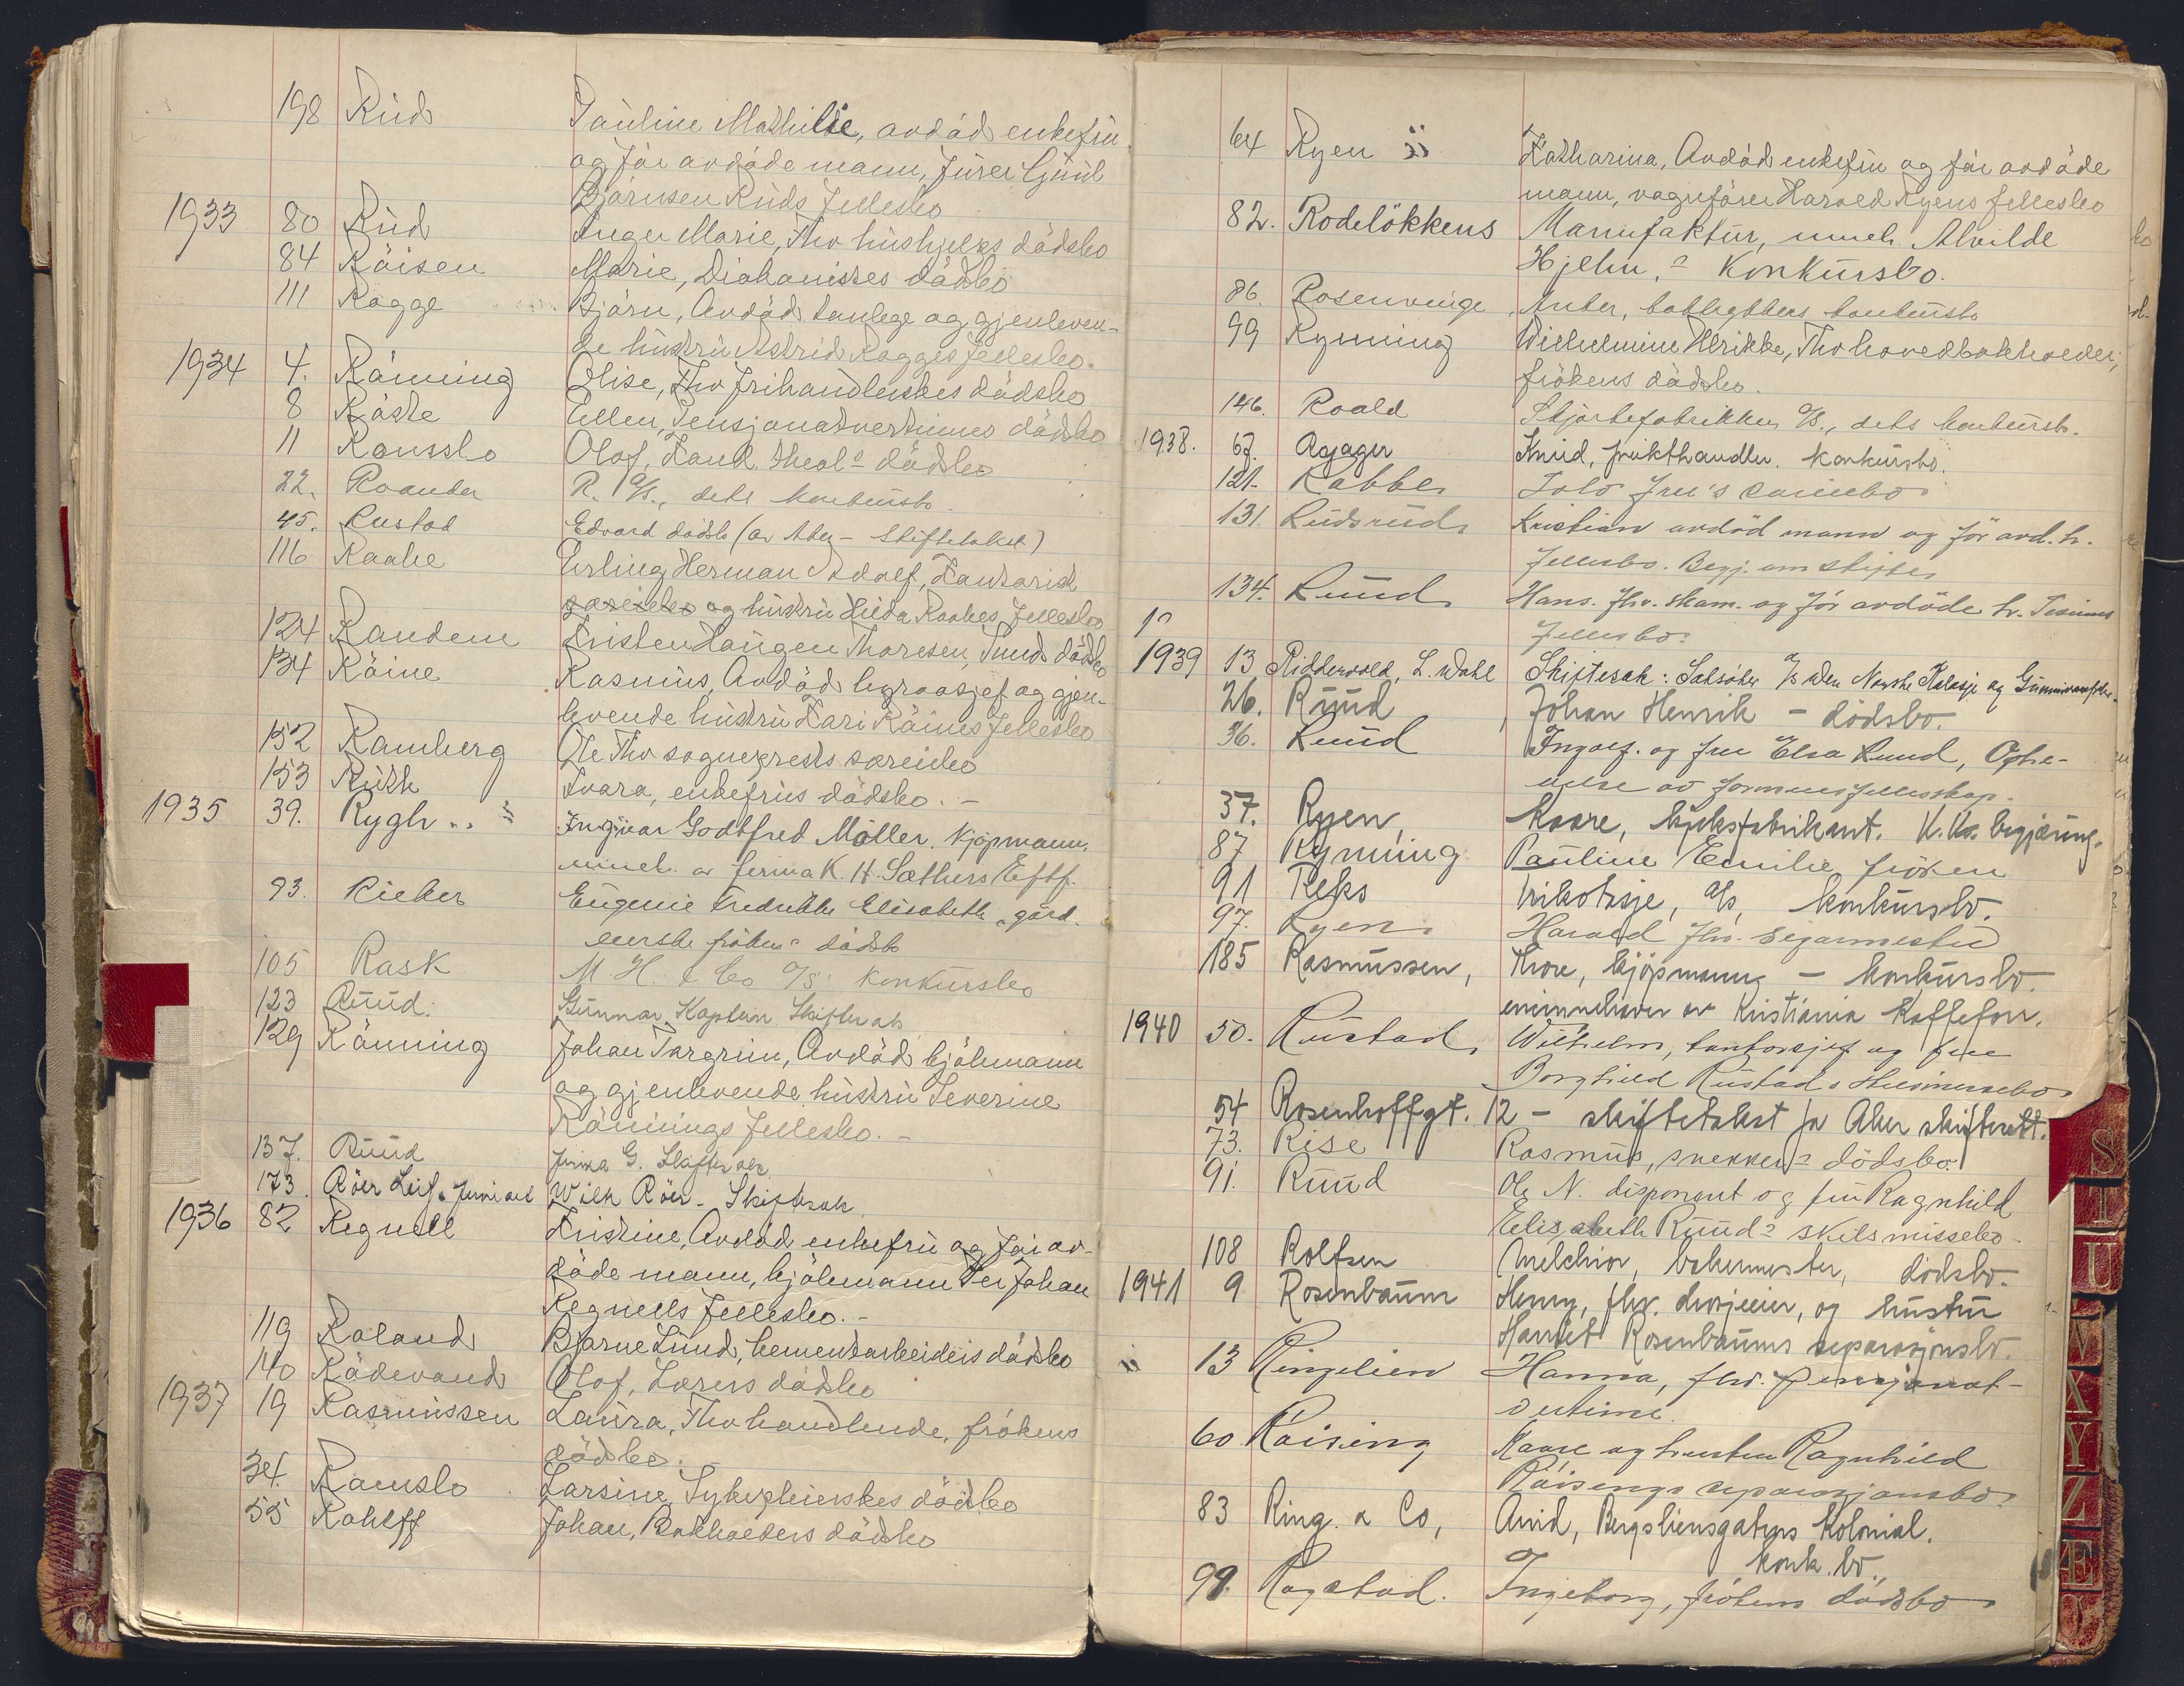 198 Rud Pauline Mathilde, avdöd enkefru
og för avdöde mann, furer Gjuul
Bjørnsen Ruds fellesbo
1933 80 Rud Inger Marie, Fhv hushjelps dödsbo
84 Röisen Marie, Diakonisses dödsbo
111 Rogge Bjørn, Avdöd tanlege og gjenleven-
de hustru Astrid Rogges fellesbo.
1934 4. Rönning Elise, Fhv frihandlerskes dödsbo
8 Röste Ellen, Pensjonatvertinnes dödsbo
11 Ronsslo Olaf, Kand. theol.s dödsbo
22. Roander R. A/S., dets konkursbo.
45. Rustad Edvard dödsbo (av Aker - Skiftetakst)
116 Raabe Erling Herman Adolf, Kontorist
særeiebo og hustru Hilda Raabes fellesbo
124 Randem Kristen Haugen Thoresen, Snnds dödsbo
134 Röine Rasmus, Avdöd byråsjef og gjen-
levende hustru Kari Röines fellesbo
152 Ramberg Ole Fhv sogneprests særeiebo
153 Ruth Tvara, enkefrus dödsbo. -
1935 39. Rygh Ingvar Godtfred Möller. Kjöpmann,
inneh. av firma K. H. Sæthers Eftf.
93. Rieber Eugenie Fredrikke Elisabeth, gård-
eierske frökens dödsbo
105 Rask M. H. & Co A/S. konkursbo
123 Ruud. Gunnar Kaptein Skiftesak
129 Rönning Johan Torgrim, Avdöd kjölmann
og gjenlevende hustru Severine
Rönnings fellesbo. -
137. Ruud Firma G. Skiftesak
173. Röer Leif. Wilh Röer - Skiftesak.
1936 82 Regnell Kristine, Avdöd enkefru og för av-
döde mann, kjölmann Per Johan
Regnells fellesbo. -
119 Roland Bjarne Lund, Sementarbeideres dödsbo
140 Rödevand Olaf, Lærers dödsbo
1937 19 Rasmussen Laura, Fhv handlende, frökens
dödsbo.
34. Ramslo Larsine, Sykepleierskes dödsbo
55 Rohlff Johan, Bokholders dödsbo
64 Ryen Katharina, Avdöd enkefru og för avdöde
mann, vognförer Harald Ryens fellesbo
82. Rodelökkens Manufaktur, inneh. Alvilde
Hjelm,s Konkursbo.
86. Rosenvinge Anker, boktrykkers konkursbo
99 Rynning Wilhelmine Ulrikke, Fhv hovedbokholder,
frökens dödsbo.
146. Roald Skjortefabrikken A/S., dets konkursbo.
1938. 67. Rojager Knud, frukthandler. konkursbo.
121. Robbe Tolo Fru's
131. Rudsrud Kristian avdöd mann og för avd. h.
fellesbo. Begj. om skifte
134. Ruud Hans. fhv. skom. og för avdöde h.
fellesbo.
1939 13 Riddervold, L. Wahl Skiftesak: Saksöker A/S den Norske Kalosje og Gummivarefabr.
26. Ruud Johan Henrik - dödsbo.
36. Ruud Ingolf. og fru Elsa Ruud, Ophe-
velse av formuesfellesskap.
37. Ryen, Kaare, kjeksfabrikant. K.Ks. begjæring.
87 Rynning Pauline Emilie fröken
91 Reks trikotasje, A/S, konkursbo.
97. Ryen Harald fhv. segermester
185 Rasmussen, Thore, kjöpmann - konkursbo.
eneinnehaver av Kristiania Kaffeforr.
1940 50. Rustad, Wilhelm, kontorsjef og fru
Borghild Rustads skilsmissebo
54 Rosenhoffgt. 12 - skiftetakst fra Aker skifterett.
73. Rise Rasmus, snekkers dödsbo.
91. Ruud Ole N. disponent og fru Ragnhild
Elisabeth Ruuds skilsmissebo.
108 Rolfsen Melchior, bakermester, dödsbo.
1941 9 Rosenbaum Henry, fhv. drosjeeier, og hustru
Harriet Rosenbaums separasjonsbo.
13 Ringelien Hanna, fhv. pensjonat-
vertinne.
60 Röising Kaare og hustru Ragnhild
Röisings separasjonsbo.
83 Ring. & Co, Arvid, Bergsliensgatens Kolonial.
konk. bo.
99. Rogstad. Ingeborg, frökens dödsbo
S
T
U
V
X
Y
Z
Æ
Ø